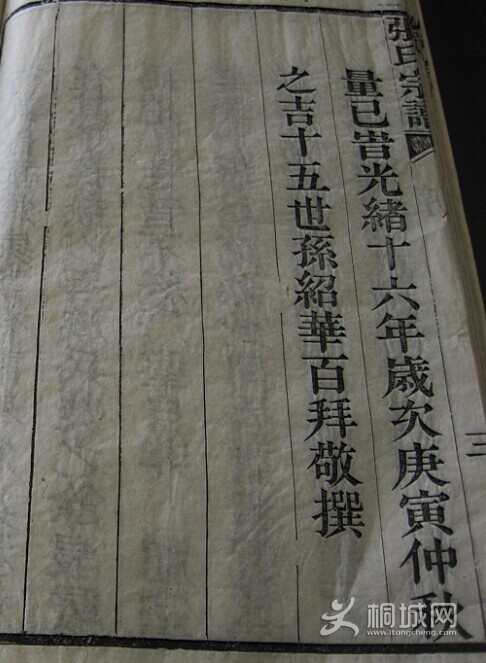 張氏宗譜
量已旹光緒十六年歲次庚寅仲秋
之吉十五世孫紹華百拜敬撰
三
桐城网
www.itongcheng.com